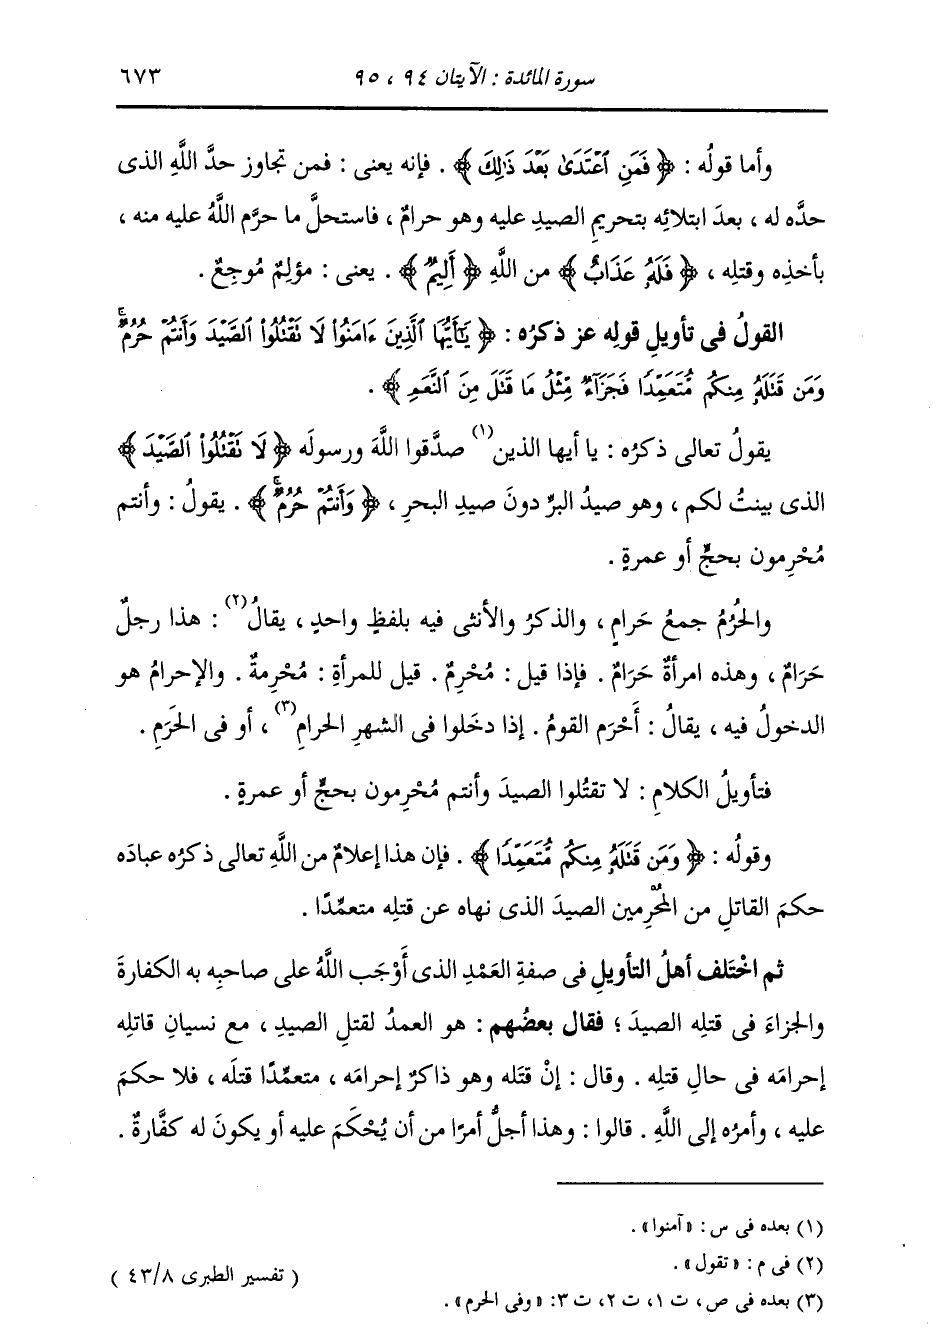 سورة المائدة : الآيتان ٩٤ ، ٩٥ ٦٧٣
وأما قولُه : ﴿ فَمَنِ ٱعْتَدَىٰ بَعْدَ ذَٰلِكَ ﴾ . فإنه يعنى : فمن تجاوز حدَّ اللَّهِ الذى
حدَّه له ، بعدَ ابتلائِه بتحريمِ الصيدِ عليه وهو حرامٌ ، فاستحلَّ ما حرَّم اللَّهُ عليه منه ،
بأخذِه وقتلِه ، ﴿ فَلَهُۥ عَذَابٌ ﴾ من اللَّهِ ﴿ أَلِيمٌ ﴾ . يعنى : مؤلِمٌ مُوجِعٌ .
القولُ فى تأويلِ قولِه عز ذكرُه : ﴿ يَٰٓأَيُّهَا ٱلَّذِينَ ءَامَنُوا۟ لَا تَقْتُلُوا۟ ٱلصَّيْدَ وَأَنتُمْ حُرُمٌ ۚ
وَمَن قَتَلَهُۥ مِنكُم مُّتَعَمِّدًا فَجَزَآءٌ مِّثْلُ مَا قَتَلَ مِنَ ٱلنَّعَمِ ﴾ .
يقولُ تعالى ذكرُه : يا أيها الذين(١) صدَّقوا اللَّهَ ورسولَه ﴿ لَا تَقْتُلُوا۟ ٱلصَّيْدَ ﴾
الذى بينتُ لكم ، وهو صيدُ البرِّ دونَ صيدِ البحرِ ، ﴿ وَأَنتُمْ حُرُمٌ ۚ ﴾ . يقولُ : وأنتم
مُحْرِمون بحجٍّ أو عمرةٍ .
والحُرُمُ جمعُ حَرامٍ ، والذكرُ والأنثى فيه بلفظٍ واحدٍ ، يقالُ(٢) : هذا رجلٌ
حَرَامٌ ، وهذه امرأةٌ حَرَامٌ . فإذا قيل : مُحْرِمٌ . قيل للمرأةِ : مُحْرِمةٌ . والإحرامُ هو
الدخولُ فيه ، يقالُ : أَحْرَم القومُ . إذا دخَلوا فى الشهرِ الحرامِ(٣) ، أو فى الحَرَمِ .
فتأويلُ الكلامِ : لا تقتُلوا الصيدَ وأنتم مُحْرِمون بحجٍّ أو عمرةٍ .
وقولُه : ﴿ وَمَن قَتَلَهُۥ مِنكُم مُّتَعَمِّدًا ﴾ . فإن هذا إعلامٌ من اللَّهِ تعالى ذكرُه عبادَه
حكمَ القاتلِ من المُحْرِمين الصيدَ الذى نهاه عن قتلِه متعمِّدًا .
ثم اخْتَلف أهلُ التأويلِ فى صفةِ العَمْدِ الذى أَوْجَب اللَّهُ على صاحبِه به الكفارةَ
والجزاءَ فى قتلِه الصيدَ ؛ فقال بعضُهم : هو العمدُ لقتلِ الصيدِ ، مع نسيانِ قاتلِه
إحرامَه فى حالِ قتلِه . وقال : إنْ قتَله وهو ذاكرٌ إحرامَه ، متعمِّدًا قتلَه ، فلا حكمَ
عليه ، وأمرُه إلى اللَّهِ . قالوا : وهذا أجلُّ أمرًا من أن يُحْكَمَ عليه أو يكونَ له كفَّارةٌ .
(١) بعده فى س : «آمنوا» .
(٢) فى م : «تقول» .
( تفسير الطبرى ٤٣/٨ )
(٣) بعده فى ص ، ت ١، ت ٢، ت ٣: «وفى الحرم» .